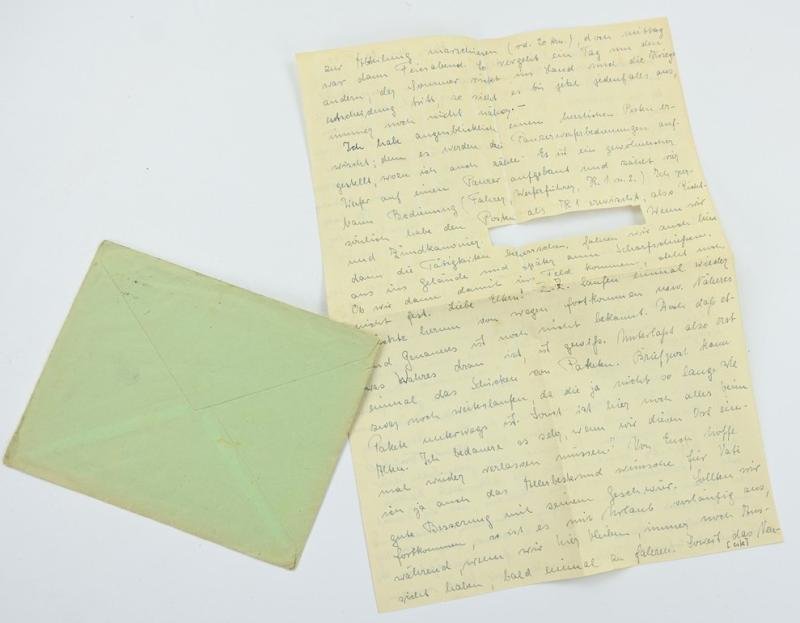 zur Abteilung marschieren (rd. 20 km.), dann mittag
war dann Feierabend. So vergeht ein Tag um den
andern, der Sommer zieht ins Land und die Kriegs-
entscheidung tritt, so sieht es bis jetzt jedenfalls aus,
immer noch nicht näher. -
Ich habe augenblicklich einen herrlichen Posten er-
wischt; denn es werden die Panzerwerferbedienungen auf-
gestellt, wozu ich auch zähle. Es ist ein gewöhnlicher
Werfer auf einen Panzer aufgebaut und zählt vier
Mann Bedienung (Fahrer, Werferführer, K. 1 u. 2.) Ich per-
sönlich habe den Posten als K 1 erwischt, also Richt-
und Zündkanonier. Wenn wir
dann die Tätigkeiten beherrschen, fahren wir auch hin
aus ins Gelände und später zum Scharfschießen.
Ob wir dann damit ins Feld kommen, steht noch
nicht fest. Liebe Eltern! Z. Z. laufen einmal wieder
herum von wegen fortkommen usw. Näheres
und Genaueres ist noch nicht bekannt. Auch daß et-
was Wahres dran ist, ist gewiß. Unterlaßt also erst
einmal das Schicken von Paketen. Briefpost kann
zwar noch weiterlaufen, da die ja nicht so lange wie
Pakete unterwegs ist. Sonst ist hier noch alles beim
Alten. Ich bedauere es sehr, wenn wir diesen Ort ein-
mal wieder verlassen müssen. Von Euch hoffe
ich ja auch das Allerbeste und wünsche für Vati
gute Besserung mit seinem Geschwür. Sollten wir
fortkommen, so ist es mit Urlaub vorläufig aus,
während, wenn wir hier bleiben, immer noch Aus-
sicht haben, bald einmal zu fahren. Soweit das Neu-